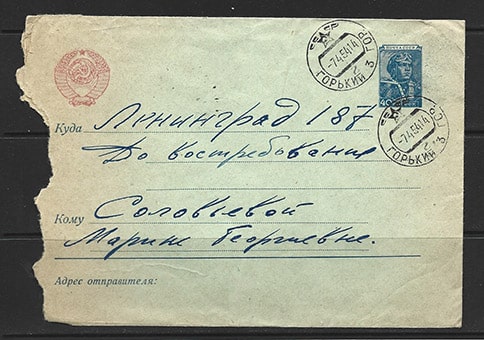 ПОЧТА СССР
40
ГОРЬКИЙ 3 ГОР.
-7.4.54 14
ГОРЬКИЙ 3 ГОР.
-7.4.54 14
Куда Ленинград 187
До востребования
Кому Соловьевой
Марине Георгиевне.
Адрес отправителя: